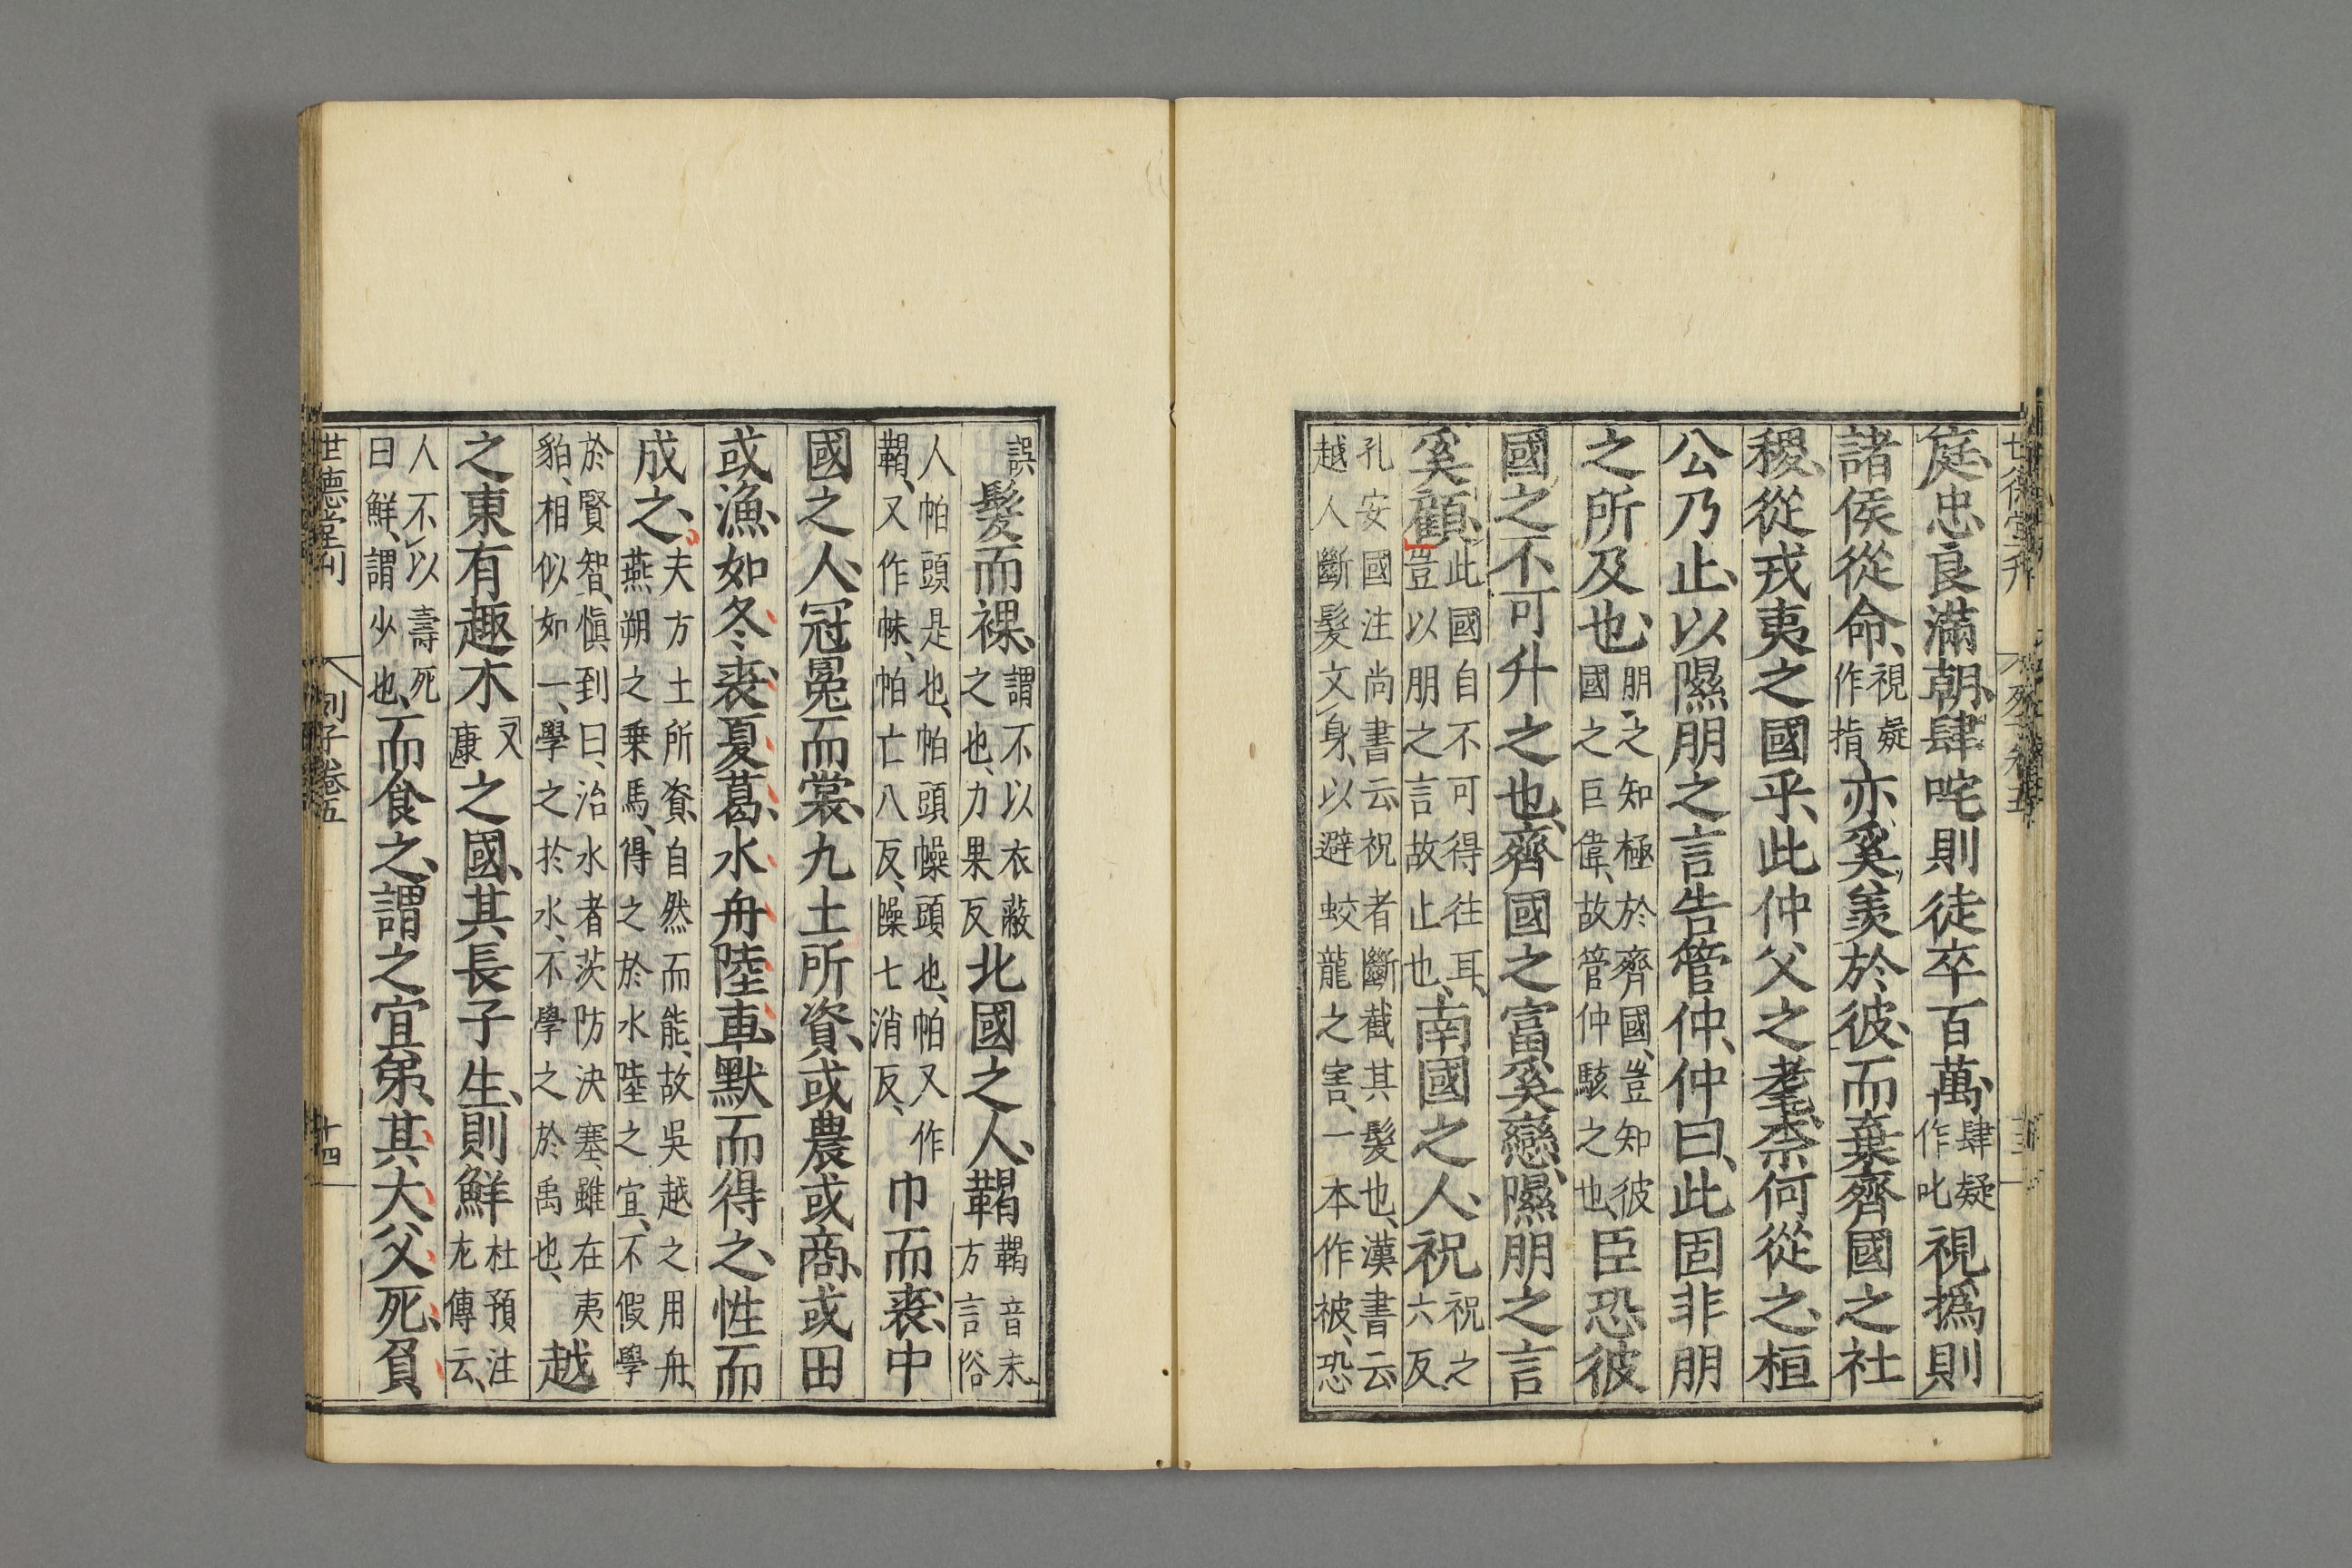 庭、忠良滿朝、肆咤則徒卒百萬、肆疑作叱視撝則
諸侯從命、視疑作指亦奚羨於彼、而棄齊國之社
稷、從戎夷之國乎、此仲父之耄、柰何從之、桓
公乃止、以隰朋之言告管仲、仲曰、此固非朋
之所及也、朋之知極於齊國、豈知彼國之巨偉、故管仲駭之也、臣恐彼
國之不可升之也、齊國之富奚戀、隰朋之言
奚顧、此國自不可得往耳、豈以朋之言故止也、南國之人、祝祝之六反、
孔安國注尚書云、祝者斷截其髮也、漢書云、
越人斷髮文身、以避蛟龍之害、一本作被、恐
誤髮而裸、謂不以衣蔽之也、力果反北國之人、鞨鞨音末、方言俗
人帕頭是也、帕頭幧頭也、帕又作
鞨、又作帓、帕亡八反、幧七消反、巾而裘、中
國之人、冠冕而裳、九土所資、或農或商、或田
或漁、如冬裘、夏葛、水舟陸車、默而得之、性而
成之、夫方土所資、自然而能、故吳越之用舟、燕朔之乘馬、得之於水陸之宜、不假學
於賢智、愼到曰、治水者茨防決塞、雖在夷
貊、相似如一、學之於水、不學之於禹也、越
之東有趣木又康之國、其長子生、則鮮杜預注左傳云、
人不以壽死曰鮮、謂少也、而食之、謂之宜弟、其大父死、負
世德堂刊 列子卷五 十四